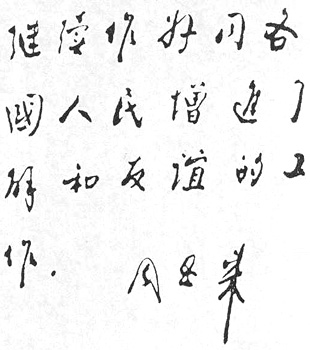 继續作好同各
國人民增進了
解和友誼的工
作.
周恩来